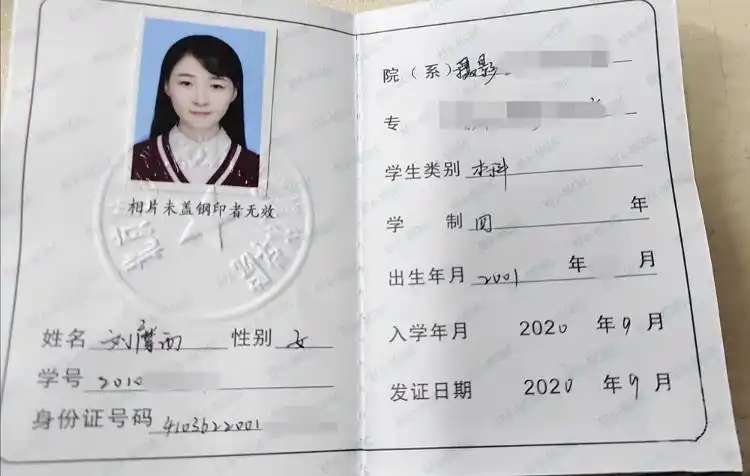 相片未盖钢印者无效
姓名 刘摩西 性别 女
学号 2010
身份证号码 4103622001
院（系）摄影
专
学生类别 本科
学 制 四 年
出生年月 2001 年 月
入学年月 2020 年 9 月
发证日期 2020 年 9 月
北京